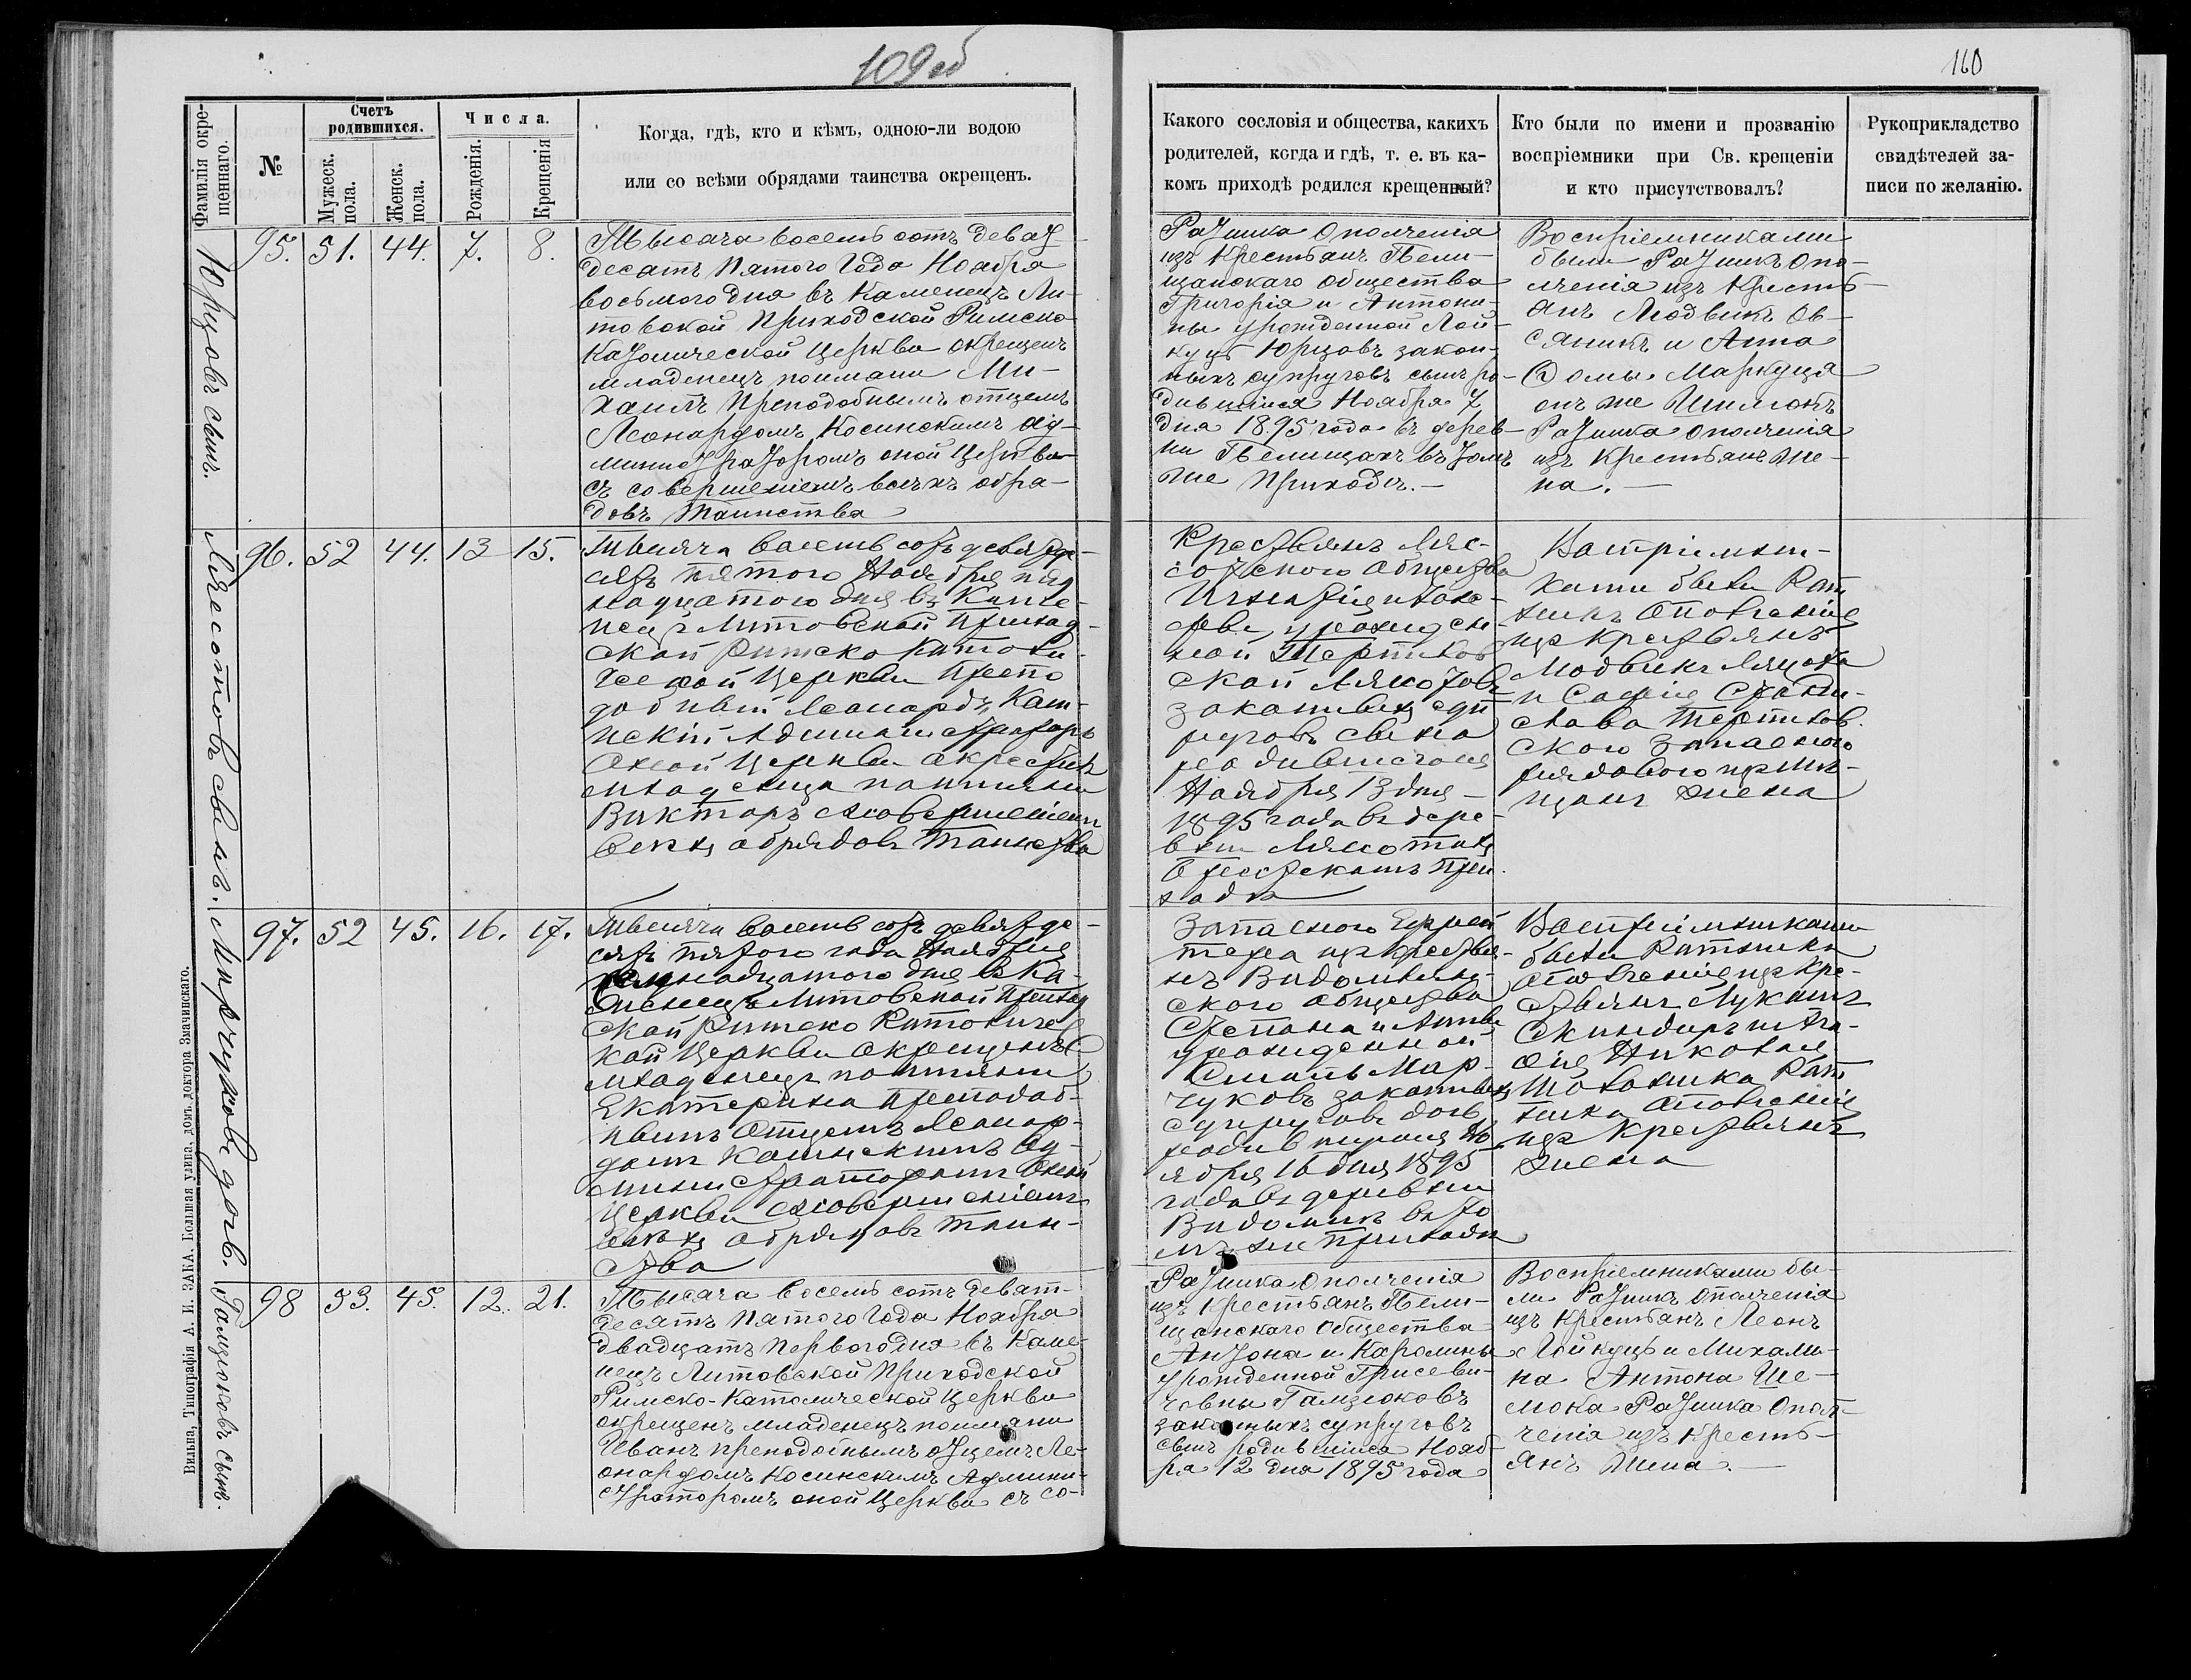 109 об
160
Фамилія окре-
щеннаго.
№
Счетъ
родившихся.
Мужеск.
пола.
Женск.
пола.
Числа.
Рожденія.
Крещенія
Когда, гдѣ, кто и кѣмъ, одною-ли водою
или со всѣми обрядами таинства окрещенъ.
Какого сословія и общества, какихъ
родителей, когда и гдѣ, т. е. въ ка-
комъ приходѣ родился крещенный?
Кто были по имени и прозванію
воспріемники при Св. крещеніи
и кто присутствовалъ?
Рукоприкладство
свидѣтелей за-
писи по желанію.
Юрцовъ сынъ.
95. 51. 44. 7. 8.
Тысяча восемь сотъ девят
десятъ пятого Года Ноября
восьмого дня въ Каменецъ Ли-
товской Приходской Римско
Католической Церкви окрещенъ
младенецъ по имени Ми-
хаилъ Преподобнымъ отцемъ
Леонардомъ Косинскимъ Ад-
министраторомъ оной Церкви
съ совершеніемъ всѣхъ обря-
довъ Таинства
Ратника Ополченія
изъ Крестьянъ Пели-
щанскаго Общества
Григорія и Антони-
ны урожденной Лой-
куцъ Юрцовъ закон-
ныхъ супруговъ сынъ ро-
дившійся Ноября 7
дня 1895 года въ дерев-
ни Пелищахъ въ томъ
же Приходѣ.
Воспріемниками
были Ратникъ Опо-
лченія изъ Кресть-
янъ Людвикъ Ов-
сяникъ и Анна
Ѳомы Маркуца
онъ же Шимонъ
Ратника Ополченія
изъ Крестьянъ же-
на.
Лясотовъ сынъ.
96. 52 44. 13 15.
Тысяча восемь сотъ девятде-
сятъ пятого Ноября пят
надцатого дня въ Каме-
нецъ Литовской Приход-
ской Римско Католи-
ческой Церкви Препо
добный Леонардъ Кошн-
скій Администраторъ
Оной Церкви окрестилъ
младенца по имени
Викторъ с совершеніем
всехъ обрядовъ Таинства
Крестьянъ Ляс-
отского общества
Игнатія и Юзе-
фы урожден-
ной Терпилов
ской Лясотовъ
законныхъ суп
руговъ сына
родившагося
Ноября 13 дня
1895 года въ дере-
вни Лясотахъ
Приходѣ
Воспріемни-
ками были Рат
никъ Ополченія
изъ крестьянъ
Людвикъ Лясота
и Софія Стани-
слава Терпилов-
ского Запасного
рядового изъ Мѣ-
щанъ жена
Марчуковъ дочь.
97. 52 45. 16. 17.
Тысяча восемь сотъ девятде-
сятъ пятого года Ноября
семнадцатого дня въ Ка-
менецъ Литовской Приход
ской Римско Католичес
кой Церкви окрещенъ
младенецъ по имени
Екатерина Преподоб-
нымъ Отцемъ Леонар-
домъ Косинскимъ Ад-
министраторомъ Оной
Церкви с совершеніемъ
всехъ обрядовъ Таин-
ства
Запасного Ефрей
тера изъ крестья-
нъ Видомлян-
ского общества
Степана и Анны
урожденной
Мар-
чуковъ законныхъ
супруговъ дочь
родившуюся Но
ября 16 дня 1895
года въ деревни
Видомля въ то
мъ же Приходѣ
Воспріемниками
были Ратника
ополченія изъ Кре-
стьянъ Лукашъ
Скиндиръ и Ага-
ѳія Николая
Рат
ника Ополченія
изъ Крестьянъ
жена
Гамзюковъ сынъ.
98 53. 45. 12. 21.
Тысяча восемь сотъ девят-
десятъ Пятого Года Ноября
двадцатъ Первого дня въ Каме-
нецъ Литовской Приходской
Римско-Католической Церкви
окрещенъ младенецъ по имени
Иванъ преподобнымъ отцемъ Ле-
онардомъ Косинскимъ Админи-
страторомъ оной Церкви съ со-
Ратника Ополченія
изъ Крестьянъ Пели-
щанскаго Общества
Антона и Каролины
урожденной Грисеви-
човны Гамзюковъ
законныхъ супруговъ
сынъ родившійся Нояб-
ря 12 дня 1895 года
Воспріемниками бы-
ли Ратникъ Ополченія
изъ Крестьянъ Леонъ
Лойкуцъ и Михали-
на Антона Ше-
мока Ратника Опол-
ченія изъ Кресть-
янъ Жена.
Вильна, Типографія А. И. ЗАКА. Большая улица, домъ доктора Змачинскаго.